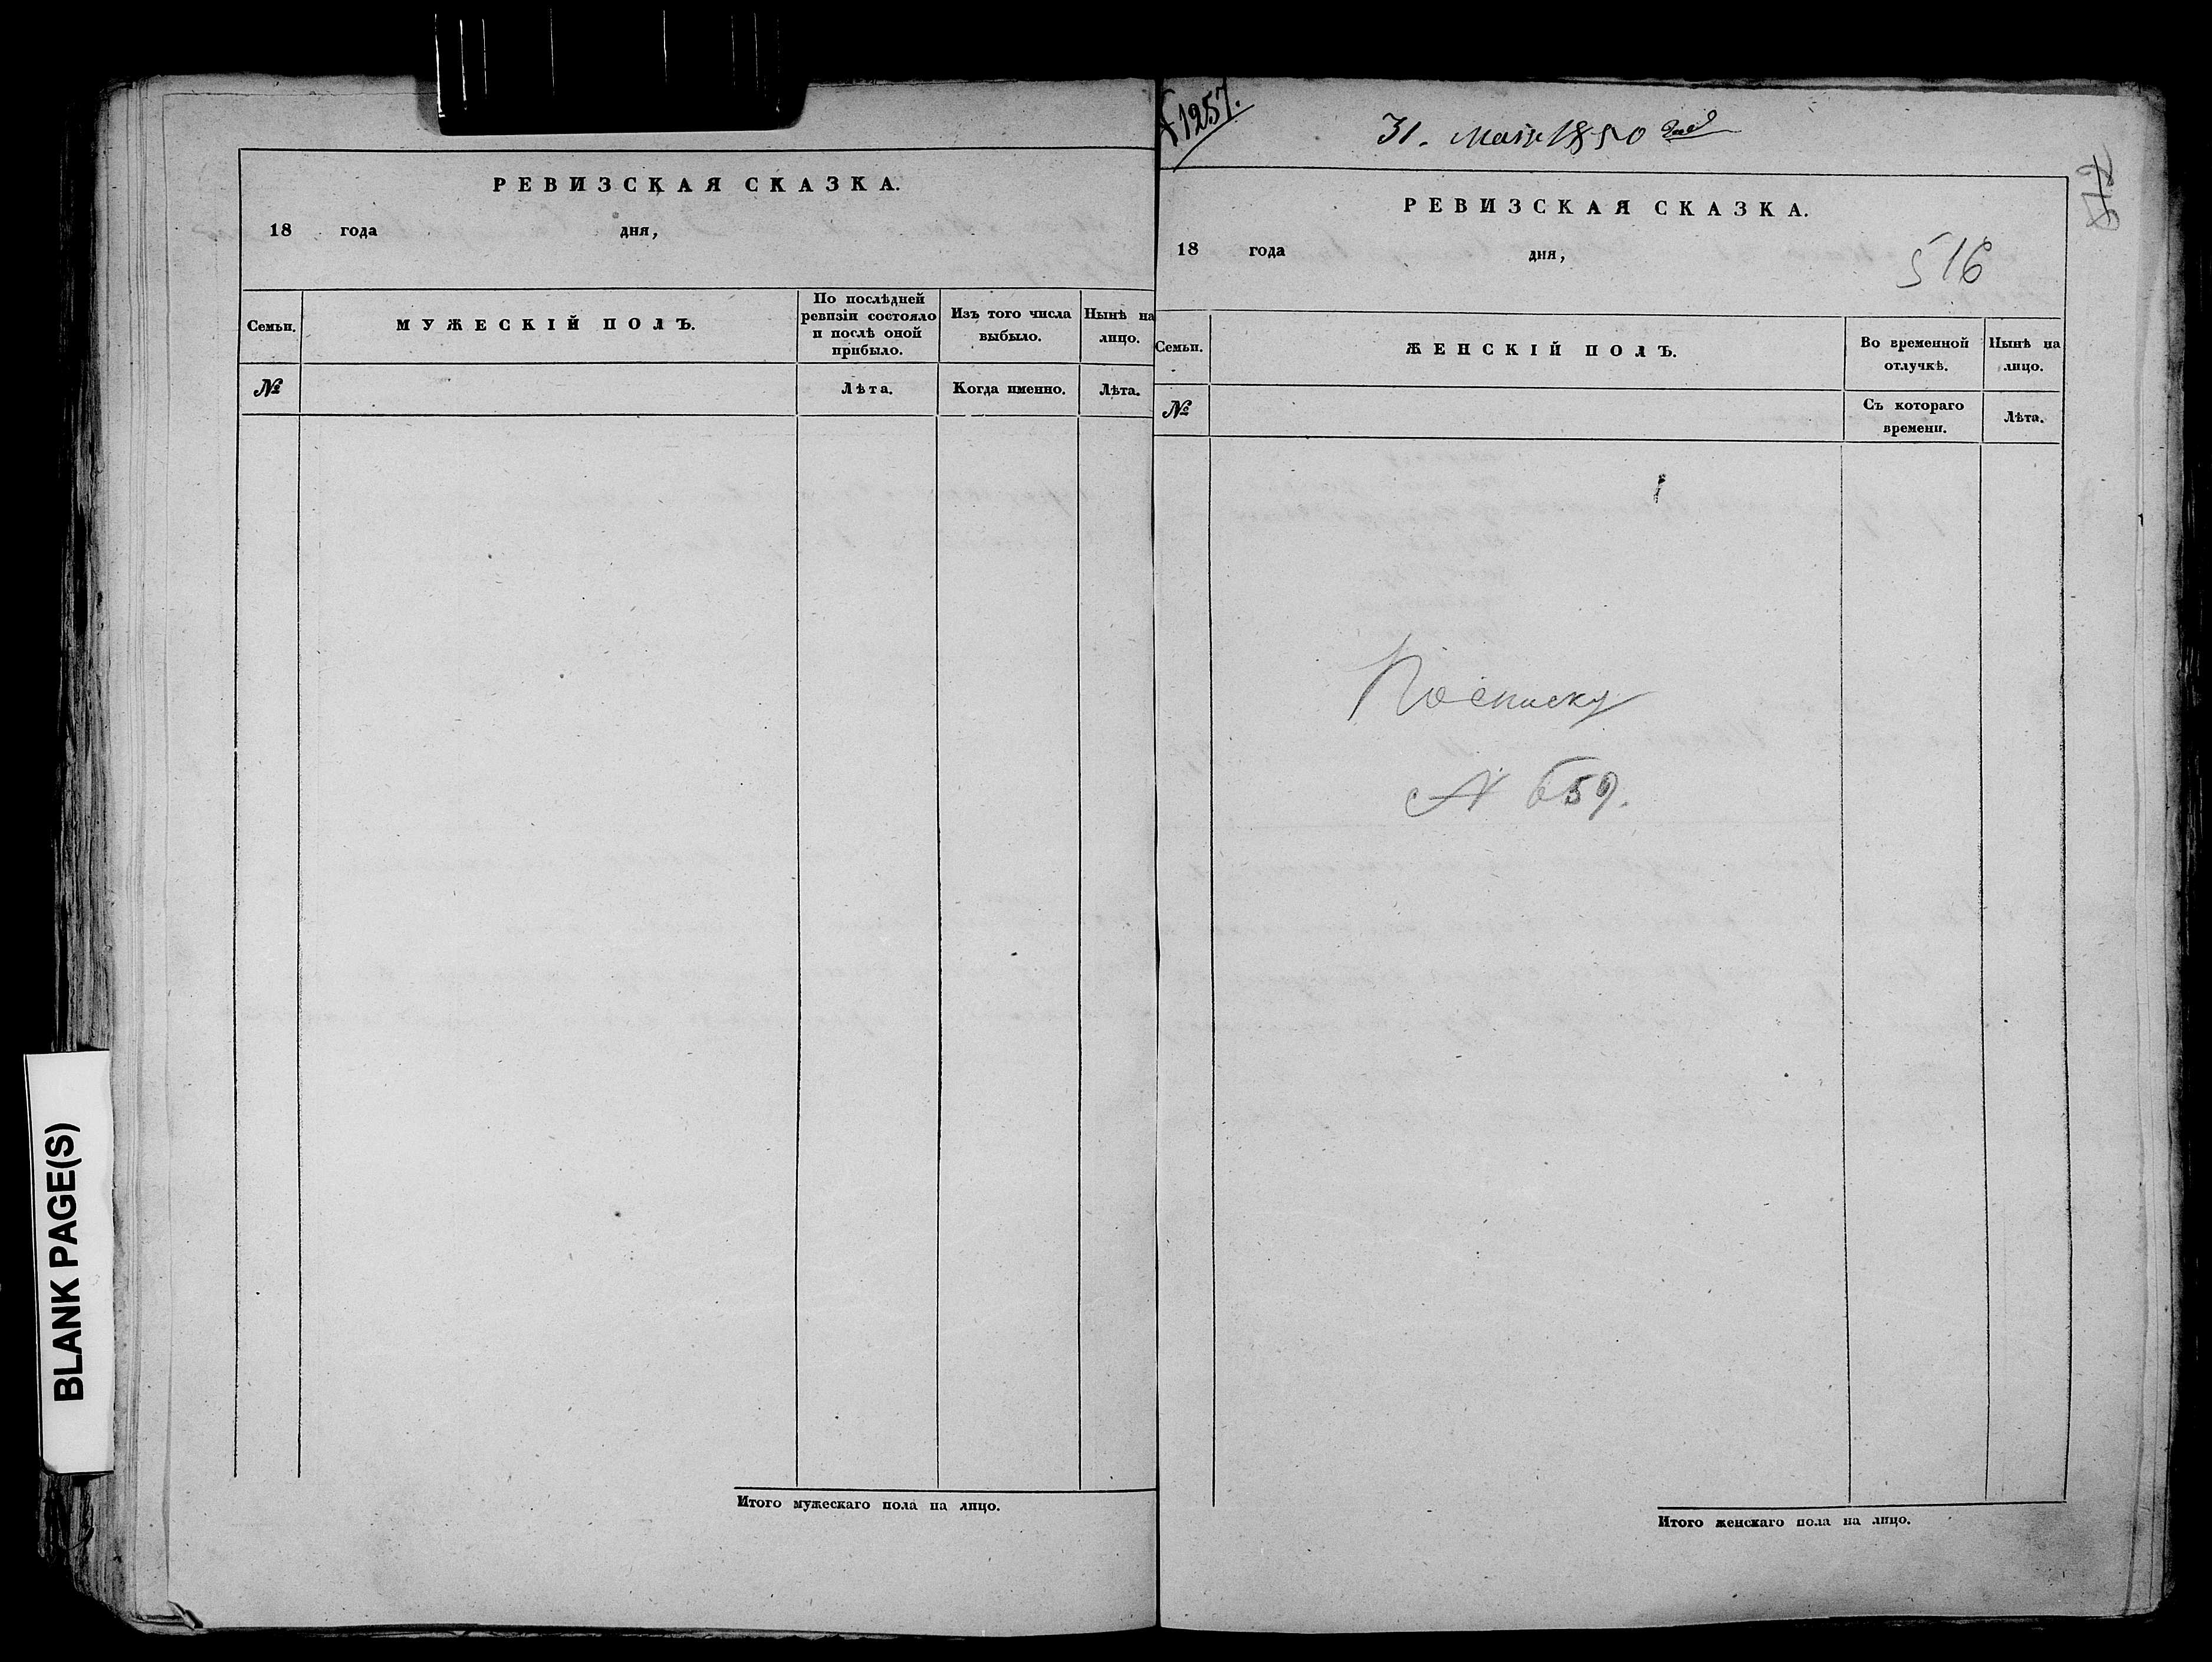 РЕВИЗСКАЯ СКАЗКА.
18 года дня,
Семьи.
МУЖЕСКІЙ ПОЛЪ.
По послѣдней
ревизіи состояло
и послѣ оной
прибыло.
Изъ того числа
выбыло.
Нынѣ на
лицо.
№
Лѣта.
Когда именно.
Лѣта.
Итого мужескаго пола на лицо.
BLANK PAGE(S)
№ 1257.
31. Маія 1850
РЕВИЗСКАЯ СКАЗКА.
18 года дня,
516
Семьи.
ЖЕНСКІЙ ПОЛЪ.
Во временной
отлучкѣ.
Нынѣ на
лицо.
№
Съ котораго
времени.
Лѣта.
По списку
№ 659.
Итого женскаго пола на лицо.